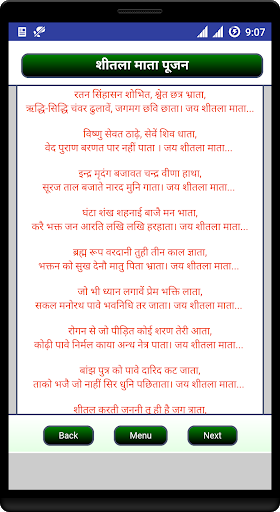 9:07
शीतला माता पूजन
रतन सिंहासन शोभित, श्वेत छत्र भ्राता,
ऋद्धि-सिद्धि चंवर ढुलावें, जगमग छवि छाता। जय शीतला माता...
विष्णु सेवत ठाढ़े, सेवें शिव धाता,
वेद पुराण बरणत पार नहीं पाता । जय शीतला माता...
इन्द्र मृदंग बजावत चन्द्र वीणा हाथा,
सूरज ताल बजाते नारद मुनि गाता। जय शीतला माता...
घंटा शंख शहनाई बाजै मन भाता,
करै भक्त जन आरति लखि लखि हरहाता। जय शीतला माता...
ब्रह्म रूप वरदानी तुही तीन काल ज्ञाता,
भक्तन को सुख देनो मातु पिता भ्राता। जय शीतला माता...
जो भी ध्यान लगावें प्रेम भक्ति लाता,
सकल मनोरथ पावे भवनिधि तर जाता। जय शीतला माता...
रोगन से जो पीड़ित कोई शरण तेरी आता,
कोढ़ी पावे निर्मल काया अन्ध नेत्र पाता। जय शीतला माता...
बांझ पुत्र को पावे दारिद कट जाता,
ताको भजै जो नाहीं सिर धुनि पछिताता। जय शीतला माता...
शीतल करती जननी तू ही है जग त्राता,
Back
Menu
Next